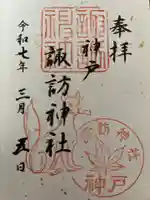 奉拝
神戸
諏訪神社
令和七年三月五日
諏訪神社
神戸